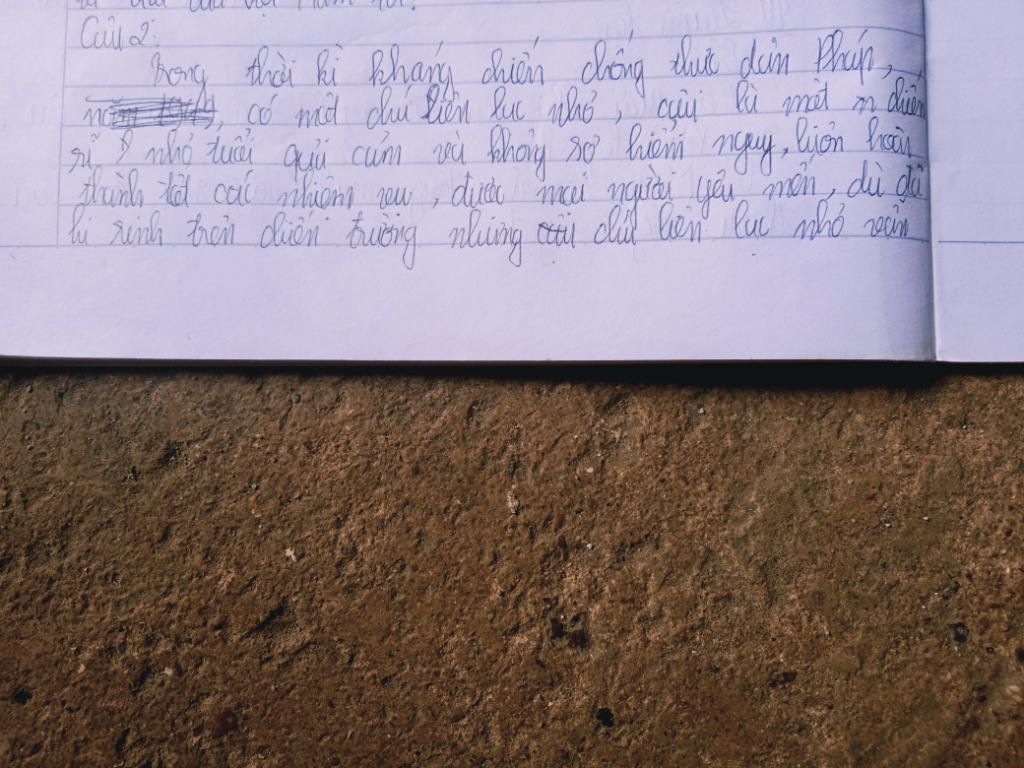 Câu 2:
Trong thời kì kháng chiến chống thực dân Pháp,
, có một chú liên lạc nhỏ, cậu là một chiến
sĩ nhỏ tuổi quả cảm và không sợ hiểm nguy, luôn hoàn
thành tốt các nhiệm vụ, được mọi người yêu mến, dù đã
hi sinh trên chiến trường nhưng chú liên lạc nhỏ vẫn